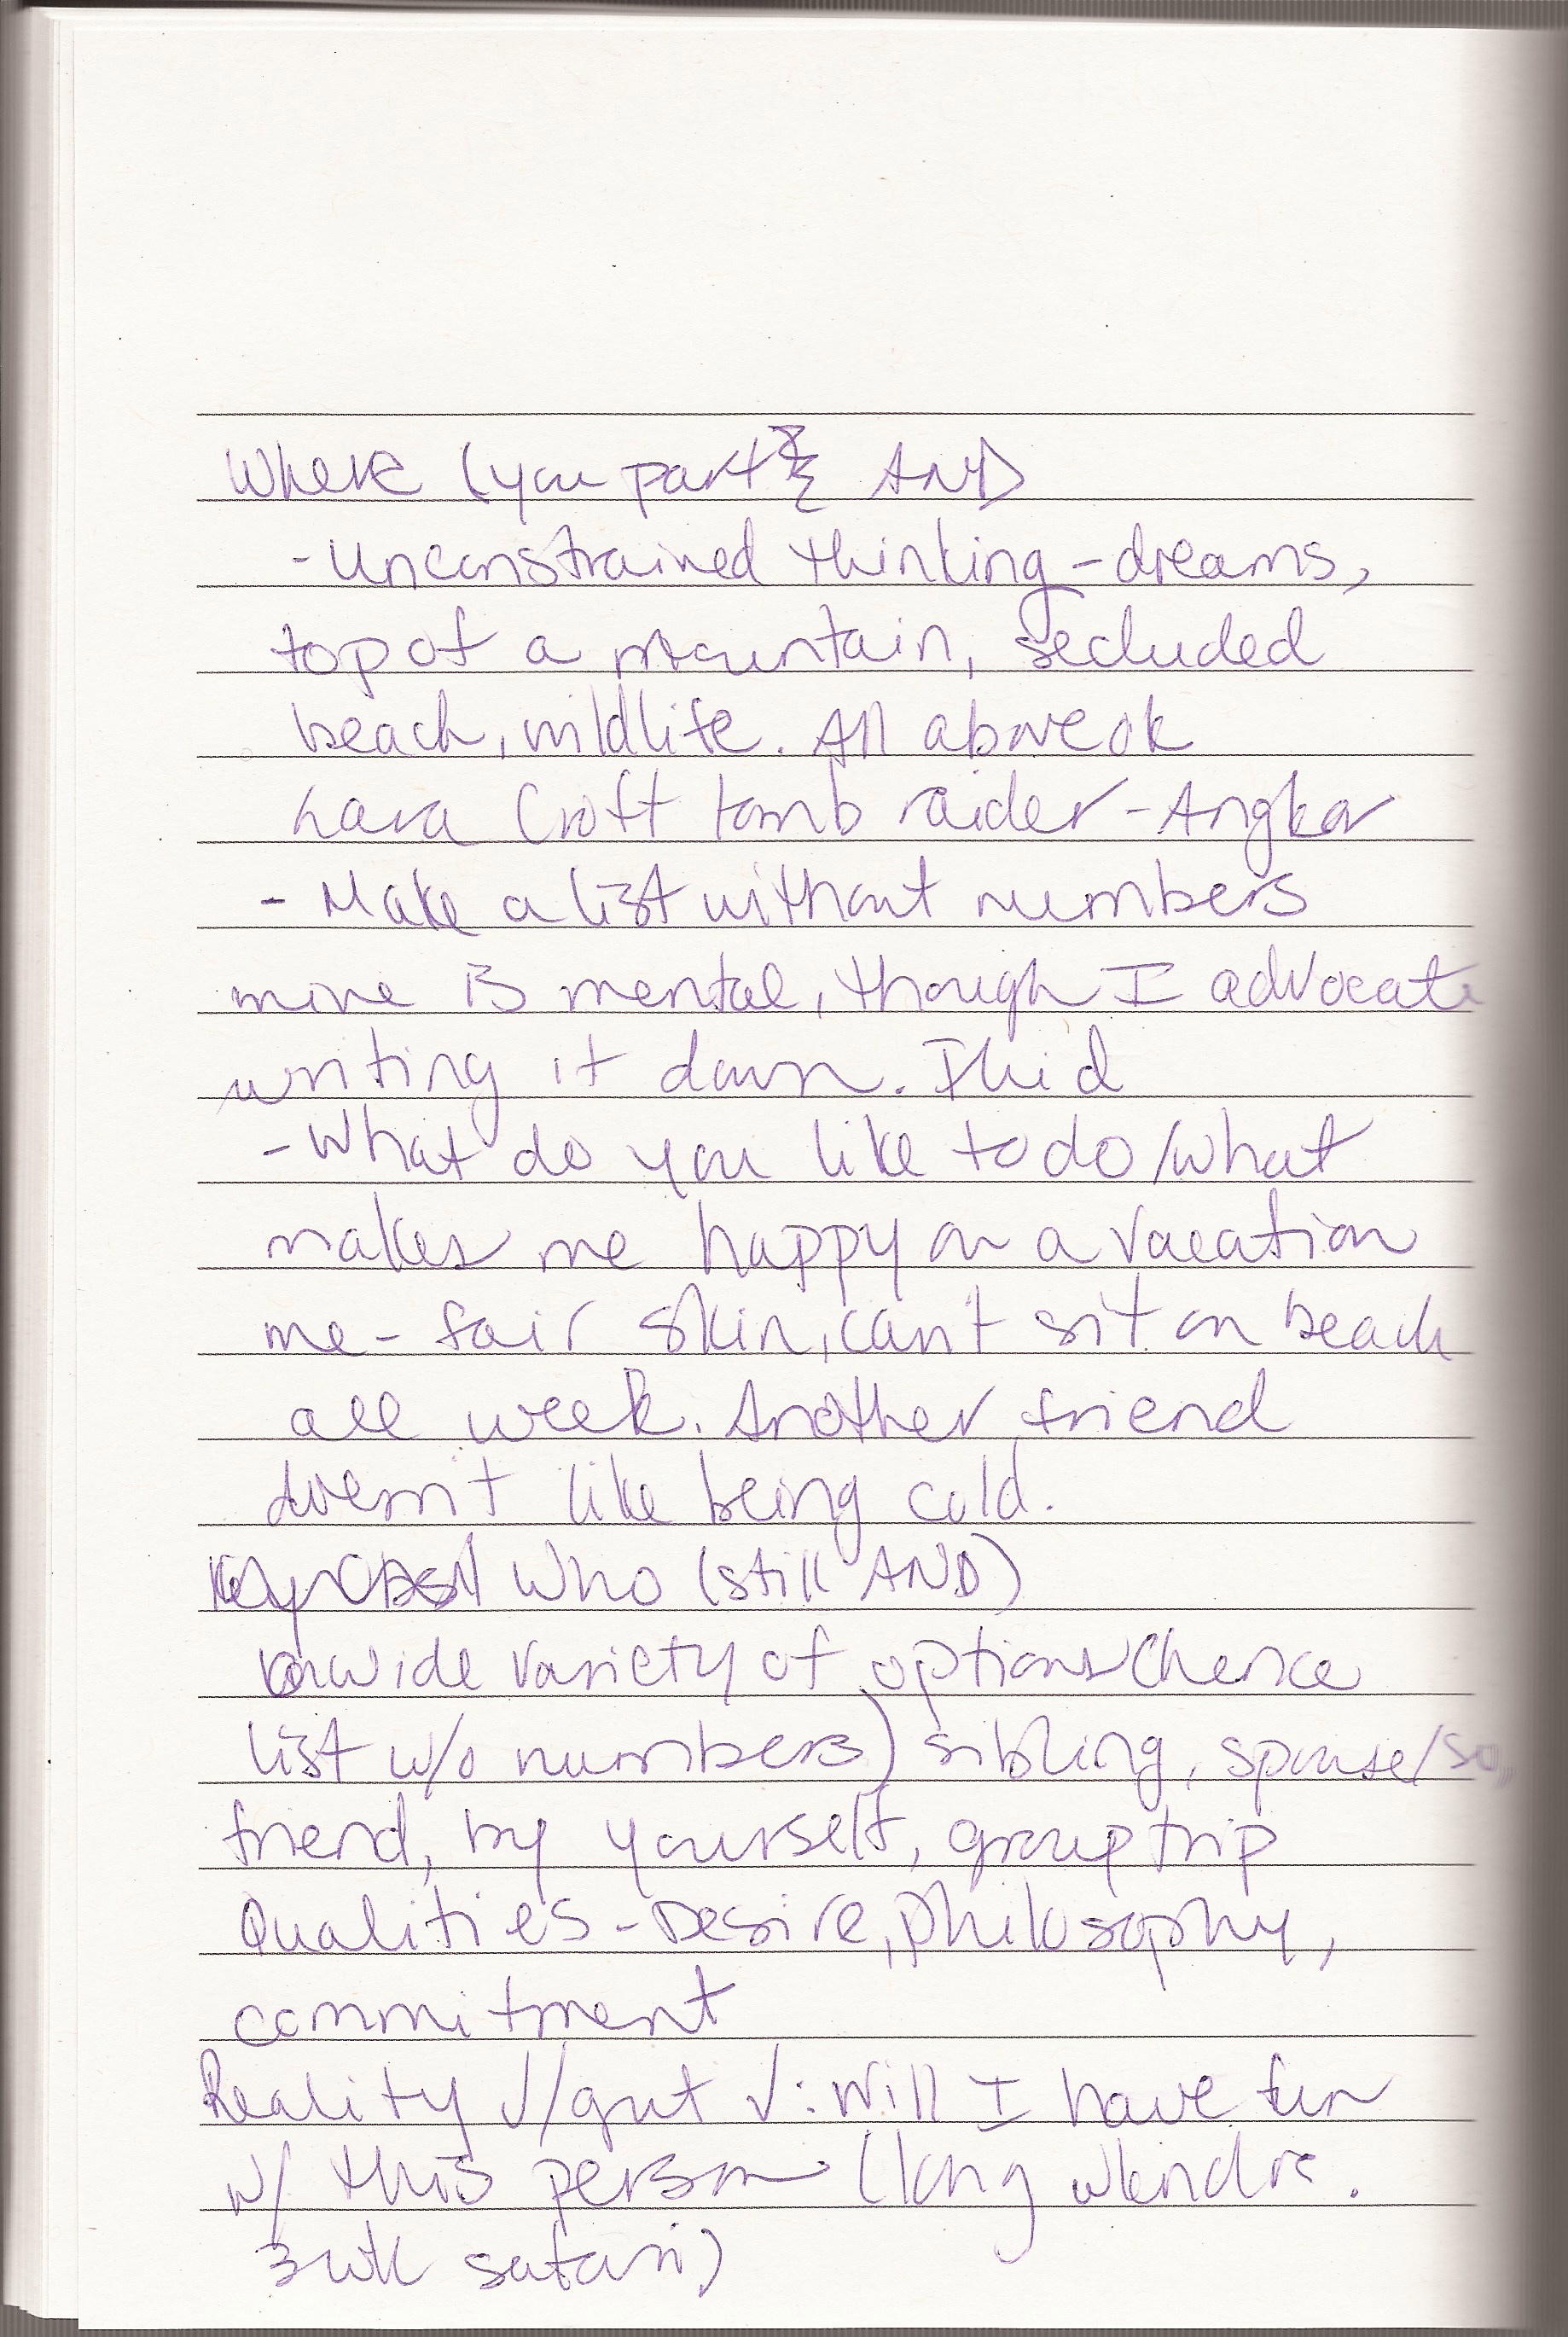 Where (you part AND
- Unconstrained thinking - dreams,
top of a mountain, secluded
beach, wildlife. All above ok
Lara Croft tomb raider - Angkor
- Make a list without numbers
mine is mental, though I advocate
writing it down. Fluid
- What do you like to do/what
makes me happy on a vacation
me - fair skin, can't sit on beach
all week. Another friend
doesn't like being cold.
Who (still AND)
wide variety of options (hence
list w/o numbers) sibling, spouse/so,
friend, by yourself, group trip
Qualities - Desire, philosophy,
commitment
Reality √/gut √: Will I have fun
w/ this person (long wkend vs.
3 wk safari)